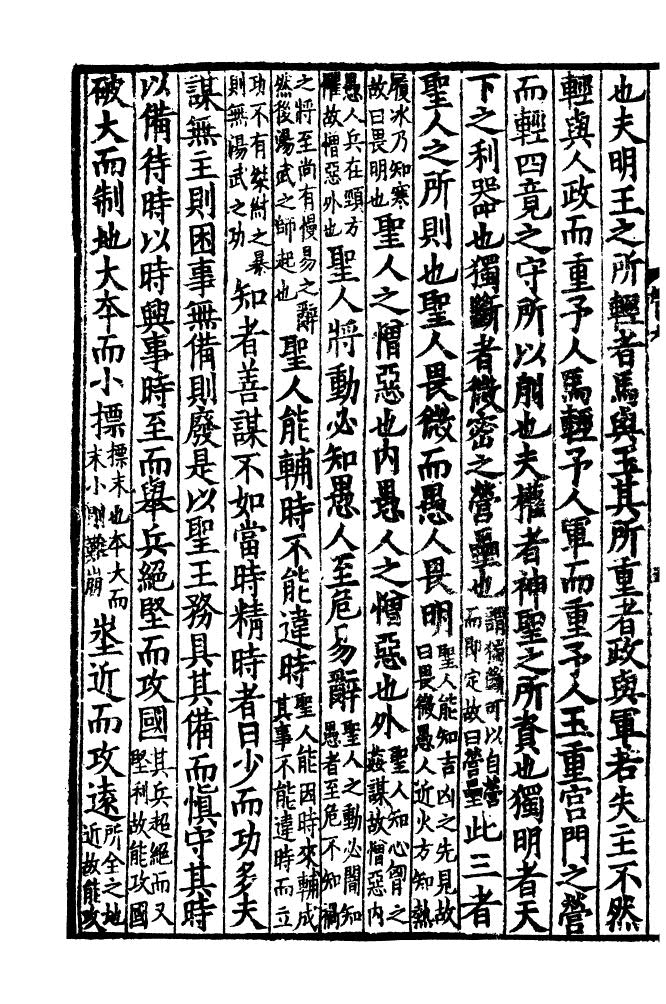 也夫明王之所輕者馬與玉其所重者政與軍若失主不然
輕與人政而重予人馬輕予人軍而重予人玉重宮門之營
而輕四竟之守所以削也夫權者神聖之所資也獨明者天
下之利器也獨斷者微密之營壘也謂獨斷可以自營而即定故曰營壘此三者
聖人之所則也聖人畏微而愚人畏明聖人能知吉凶之先見故曰畏微愚人近火方知熱
履冰乃知寒故曰畏明也聖人之憎惡也内愚人之憎惡也外聖人知心胷之姦謀故憎惡内
愚人兵在頸方懼故憎惡外也聖人將動必知愚人至危易辭聖人之動必闇知愚者至危不知禍
之將至尚有慢易之辭然後湯武之師起也聖人能輔時不能違時聖人能因時來輔成其事不能違時而立
功不有桀紂之暴則無湯武之功知者善謀不如當時精時者日少而功多夫
謀無主則困事無備則廢是以聖王務具其備而慎守其時
以備待時以時興事時至而舉兵絕堅而攻國其兵超絕而又堅利故能攻國
破大而制地大本而小摽摽末也本大而末小則難崩埊近而攻遠所全之地近故能攻